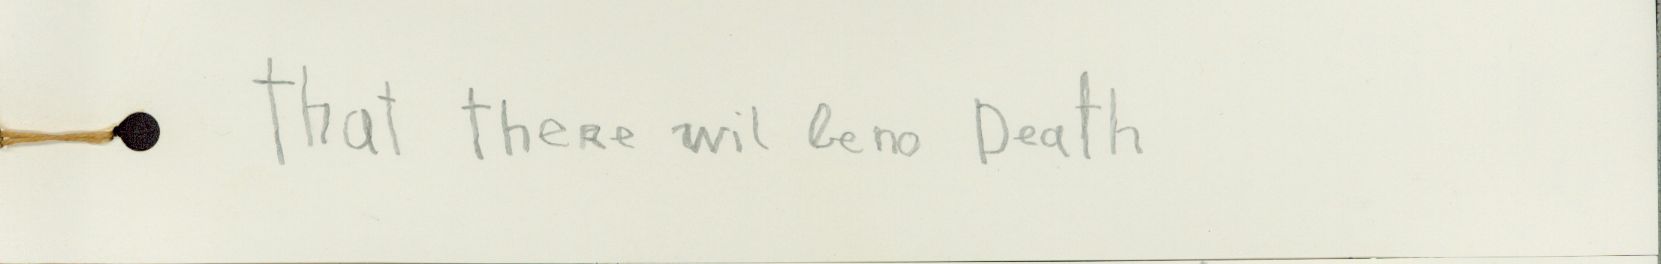 That there wil be no Death